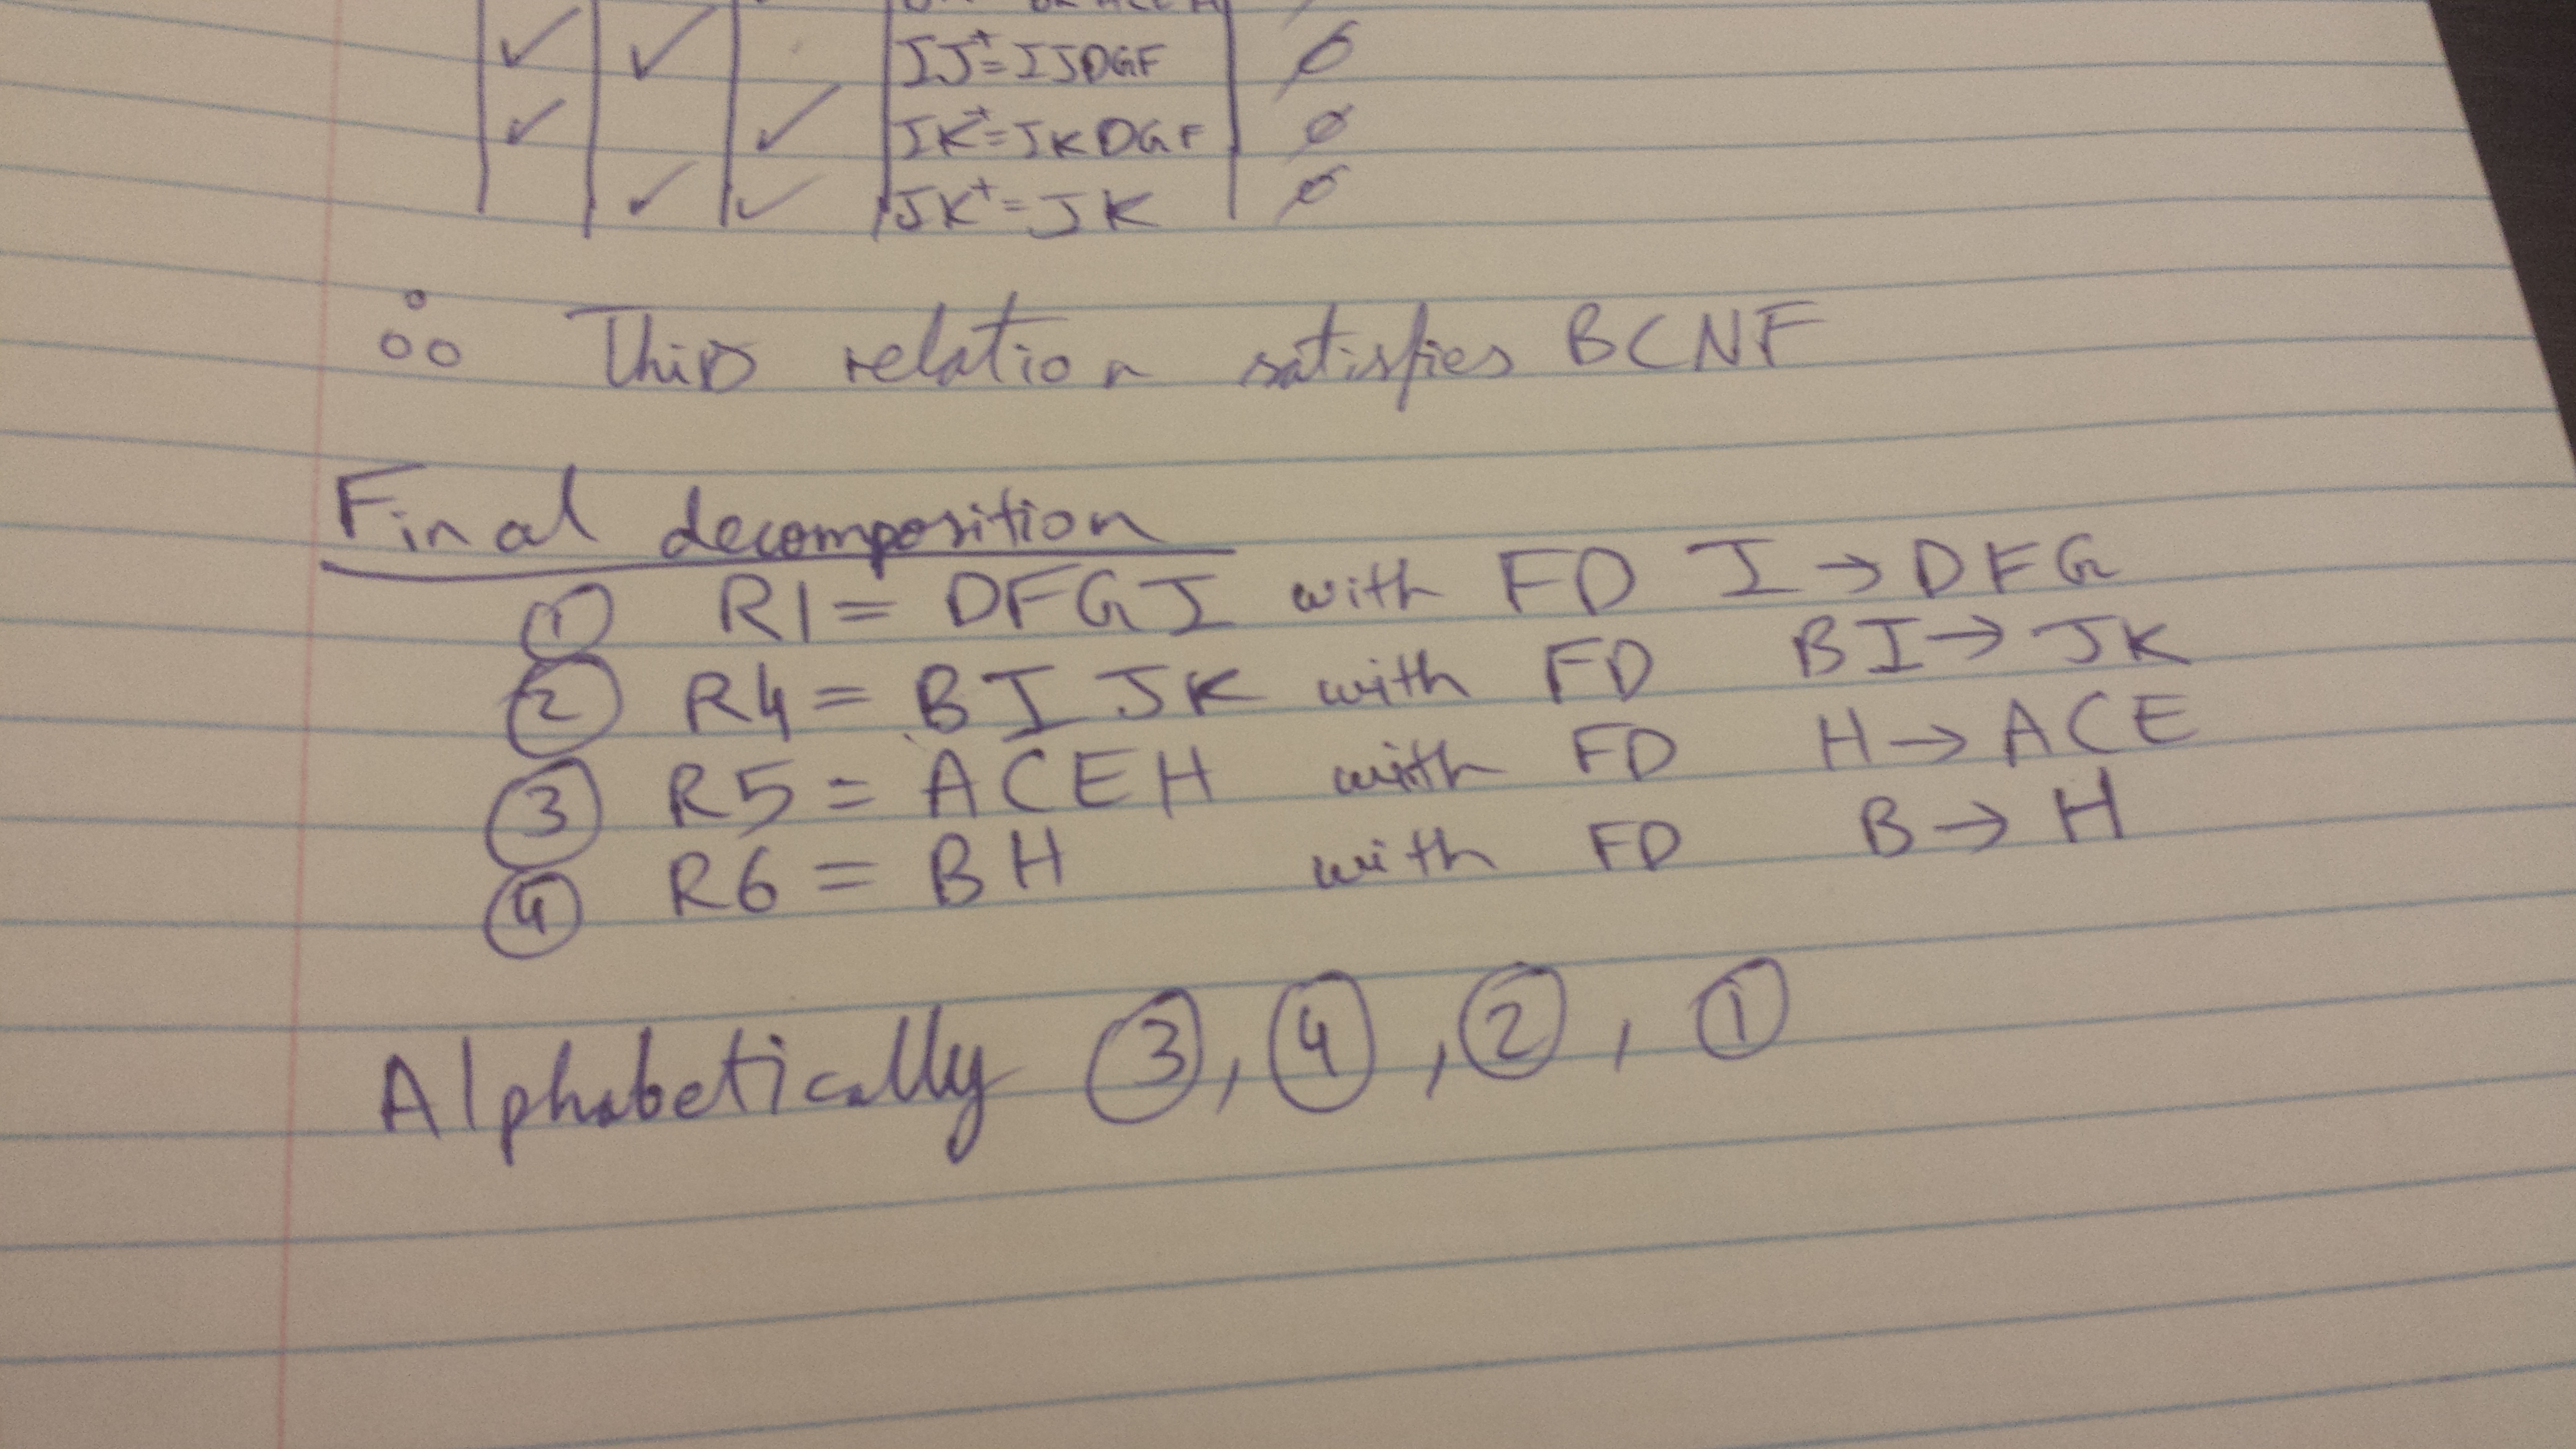 ✓ ✓ IJ⁺=IJDGF ∅
✓ ✓ IK⁺=IKDGF ∅
✓ ✓ JK⁺=JK ∅
∴ This relation satisfies BCNF
Final decomposition
① R1 = DFGI with FD I → DFG
② R4 = BIJK with FD BI → JK
③ R5 = ACEH with FD H → ACE
④ R6 = BH with FD B → H
Alphabetically ③, ④, ②, ①